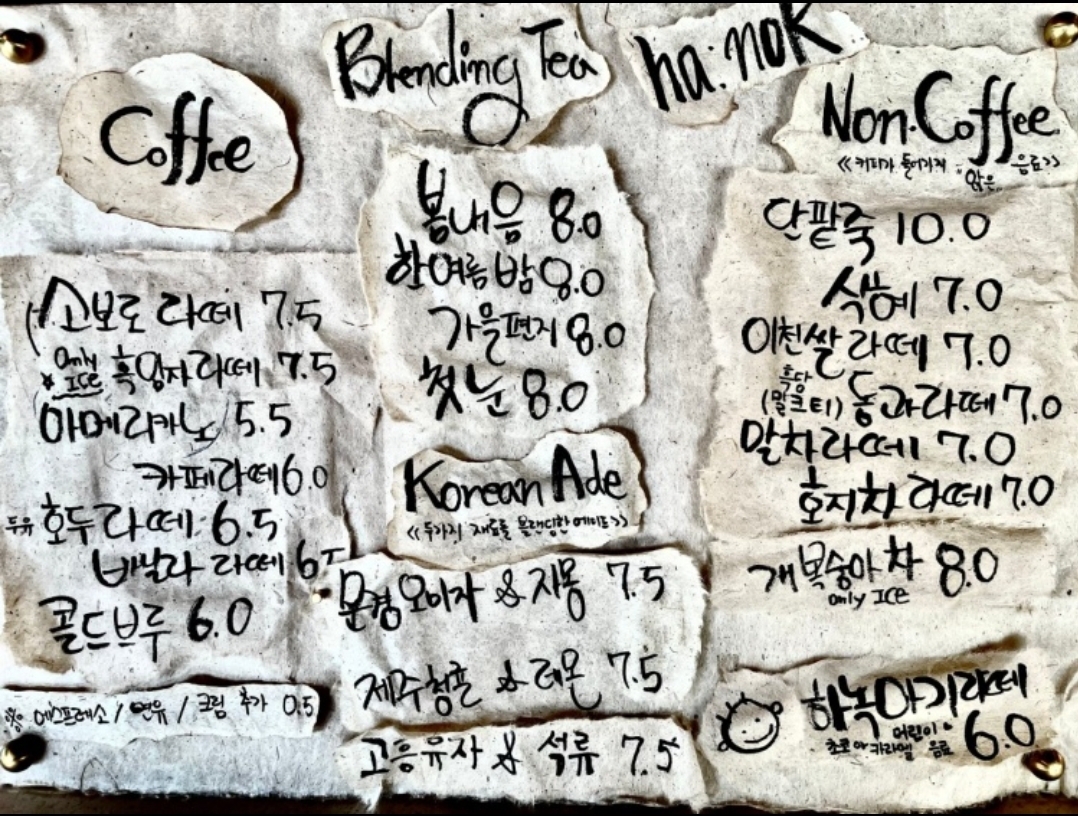 Coffee
소보로 라떼 7.5
Only ICE
흑임자라떼 7.5
아메리카노 5.5
카페라떼 6.0
두유 호두라떼 6.5
바닐라 라떼 6.5
콜드브루 6.0
※ 에스프레소 / 연유 / 크림 추가 0.5
Blending Tea
봄내음 8.0
한여름밤 8.0
가을편지 8.0
첫눈 8.0
Korean Ade
<<두가지 재료를 블랜딩한 에이드>>
문경오미자 & 자몽 7.5
제주청귤 & 레몬 7.5
고흥유자 & 석류 7.5
ha:nok
Non-Coffee
<<커피가 들어가지 "않은" 음료>>
단팥죽 10.0
식혜 7.0
이천쌀라떼 7.0
흑당
(밀크티) 동과라떼 7.0
말차라떼 7.0
호지차 라떼 7.0
개복숭아차 8.0
only ICE
하녹아기라떼
어린이
초코 or 카라멜 음료 6.0